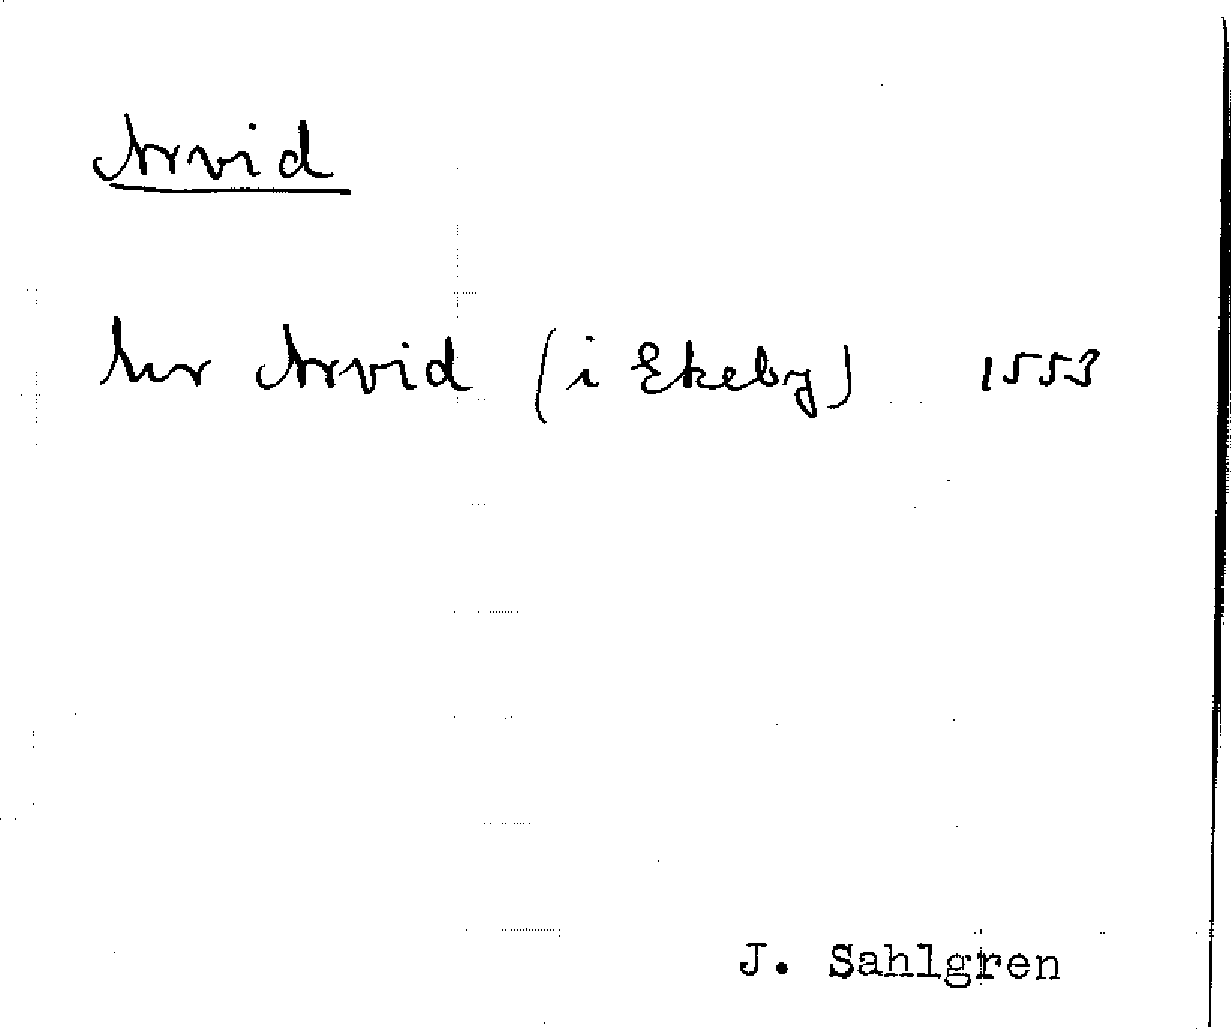 Arvid
her Arvid (i Ekeby) 1553
J. Sahlgren